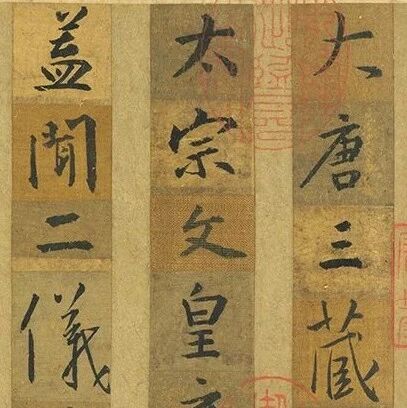 大唐三藏
太宗文皇
蓋聞二儀